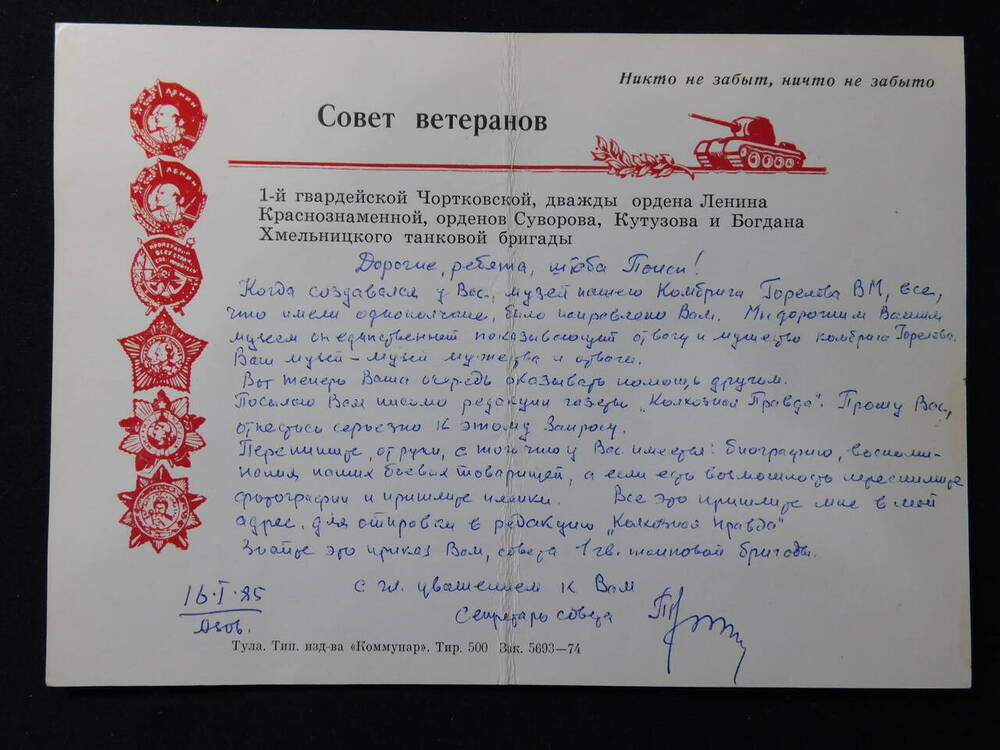 Никто не забыт, ничто не забыто
Совет ветеранов
1-й гвардейской Чортковской, дважды ордена Ленина
Краснознаменной, орденов Суворова, Кутузова и Богдана
Хмельницкого танковой бригады
Дорогие, ребята, штаба Поиск!
Когда создавался у Вас, музей нашего Комбрига Горелова ВМ, все,
что имели однополчане, было направлено Вам. Мы дорожим Вашим
музеем он единственный показывающий отвагу и мужество комбрига Горелова.
Ваш музей – музей мужества и отваги.
Вот теперь Ваша очередь оказывать помощь другим.
Посылаю Вам письмо редакции газеты „Колхозная Правда". Прошу Вас,
отнестись серьезно к этому Запросу.
Перепишите, от руки, с того что у Вас имеется: биографию, воспоми-
нания наших боевых товарищей, а если есть возможность переснимите
фотографии и пришлите снимки. Все это пришлите мне в мой
адрес, для отправки в редакцию „Колхозная правда"
Знайте это приказ Вам, совета 1 гв. танковой бригады.
С гл. уважением к Вам
16·I·85
Азов.
Секретарь совета
Тула. Тип. изд-ва «Коммунар». Тир. 500 Зак. 5693—74